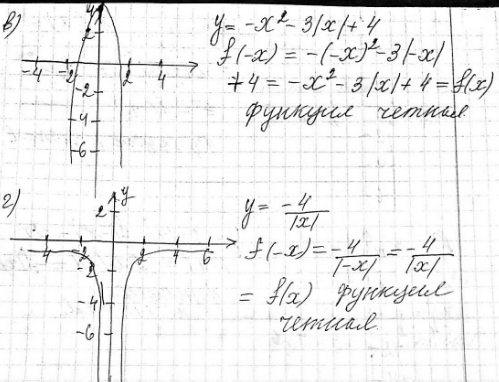 в)
4
2
-4 -2 2 4
-2
-4
-6
y = -x² - 3|x| + 4
f(-x) = -(-x)² - 3|-x|
+4 = -x² - 3|x| + 4 = f(x)
функция четная
г)
y
2
-4 -2 2 4 6
-2
-4
-6
y = -4/|x|
f(-x) = -4/|-x| = -4/|x|
= f(x) функция
четная